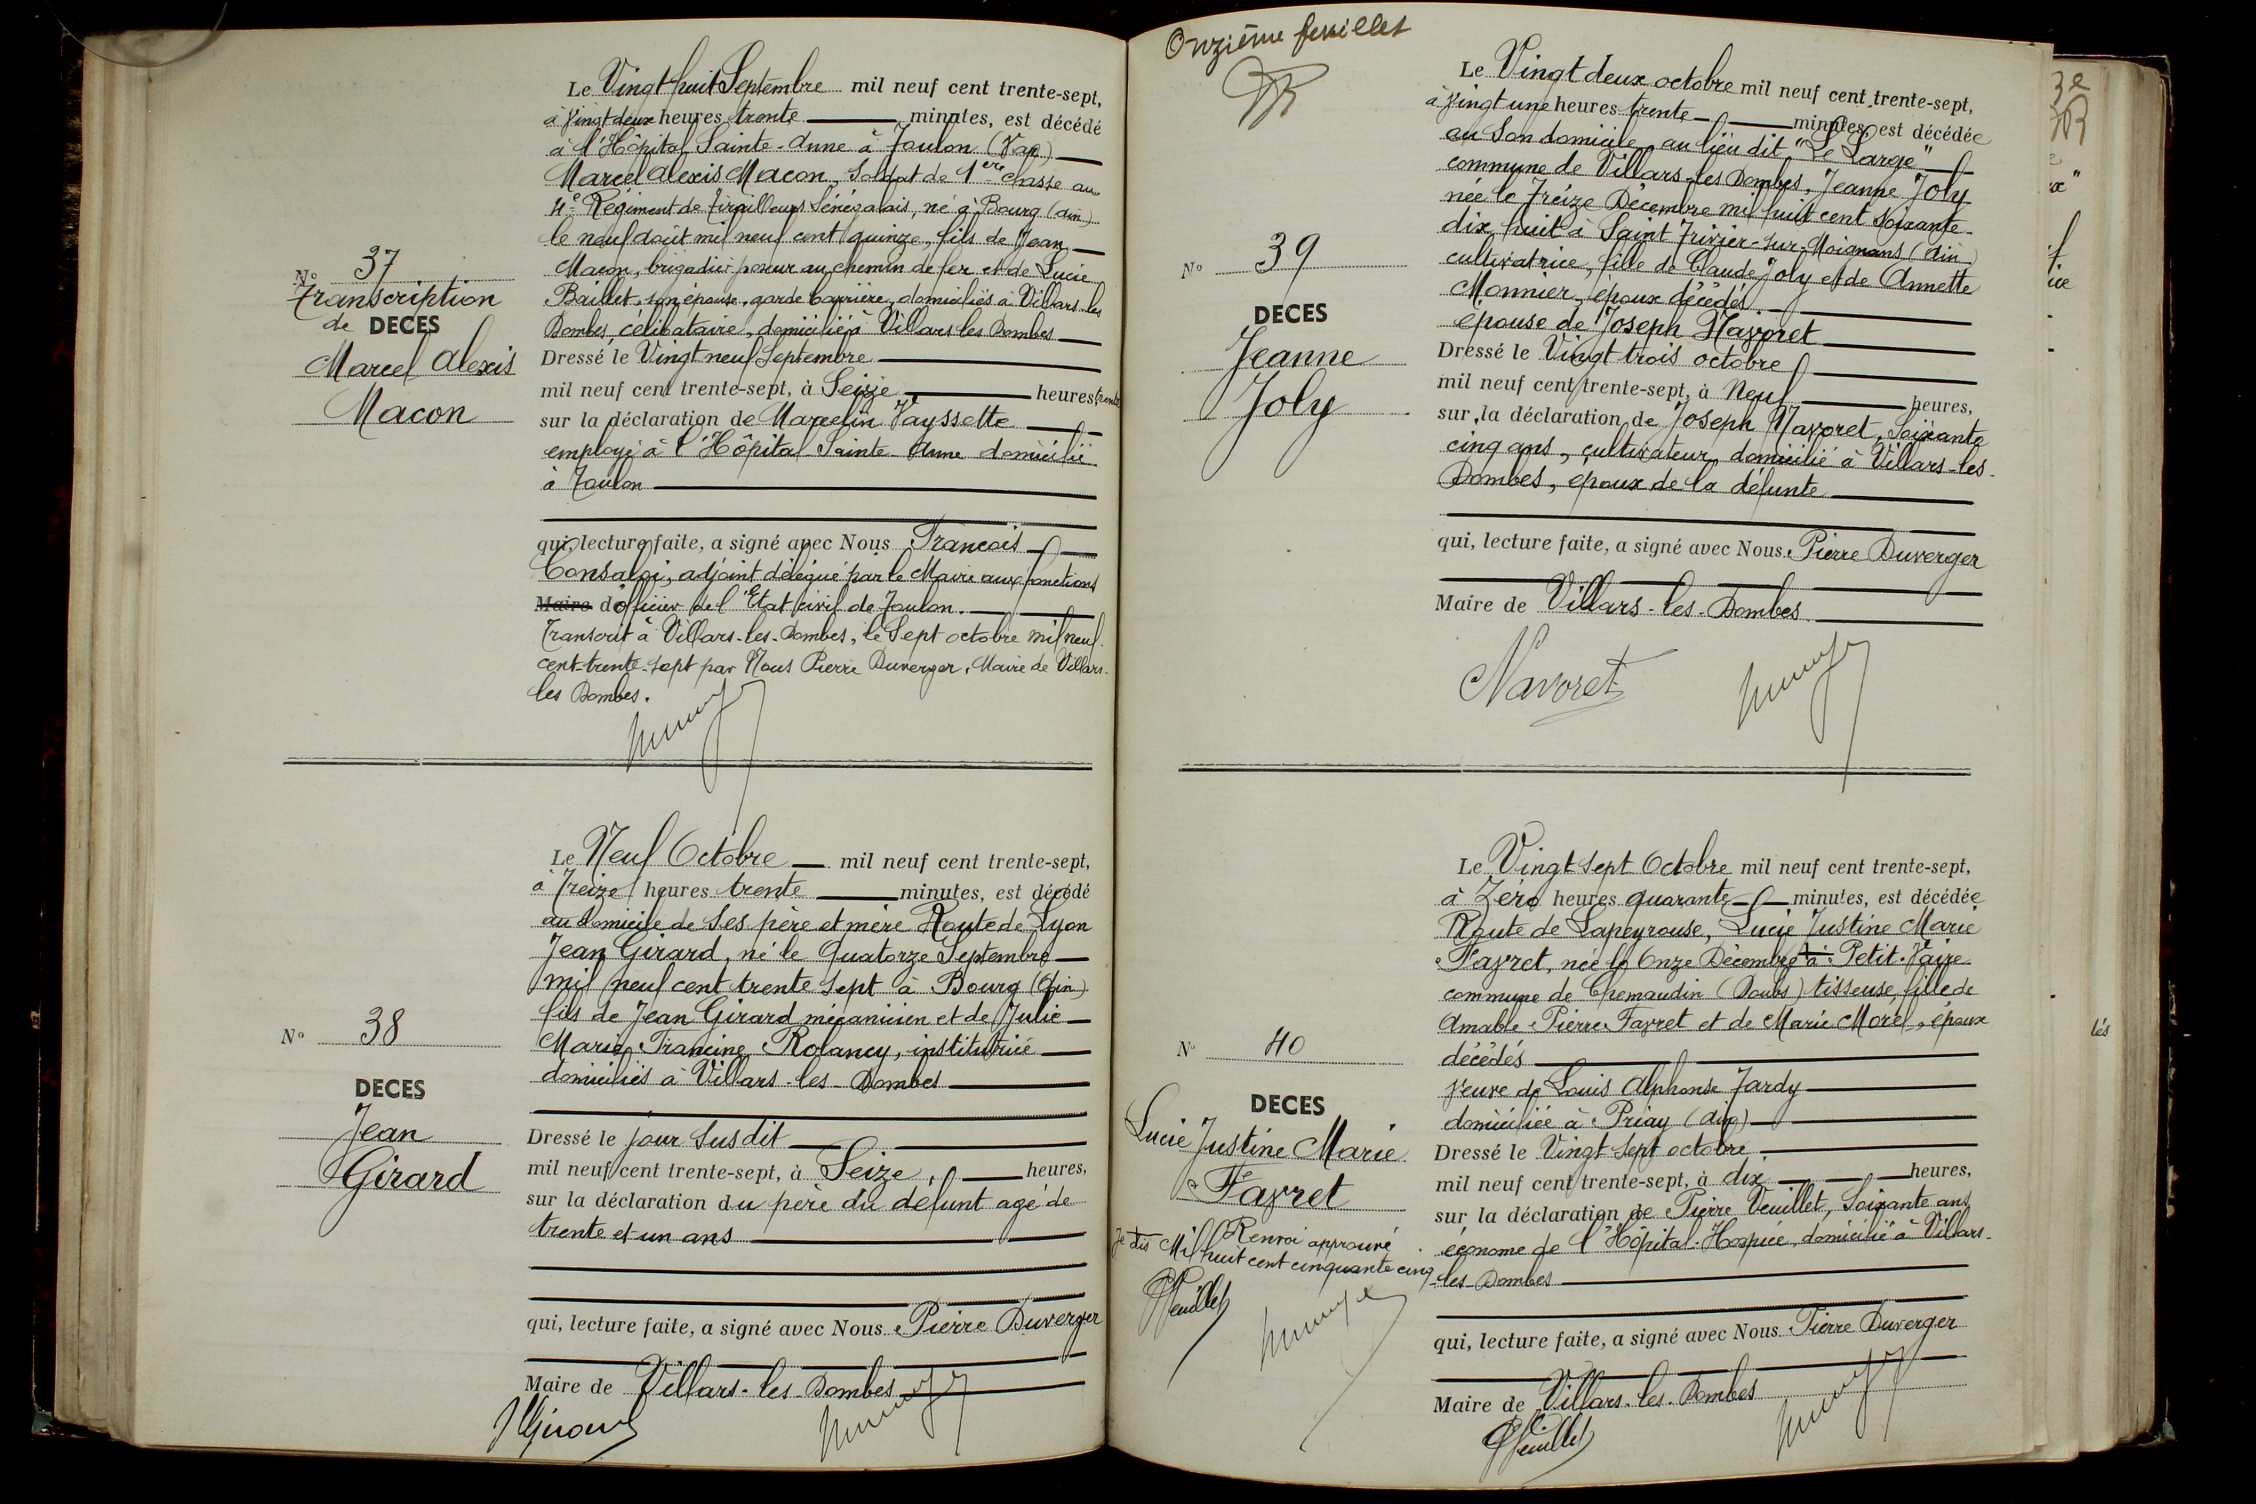 Le Vingt huit Septembre mil neuf cent trente-sept,
à Vingt deux heures trente minutes, est décédé
à l'Hôpital Sainte-Anne à Toulon (Var)
Marcel Alexis Macon, Soldat de 1ère classe au
4e Régiment de tirailleurs Sénégalais, né à Bourg (Ain)
le neuf août mil neuf cent quinze, fils de Jean
Macon, brigadier poseur au chemin de fer et de Lucie
Baillet, son épouse, garde barrière, domiciliés à Villars-les
Dombes, célibataire, domicilié à Villars les Dombes
No 37
Transcription
de DECES
Marcel Alexis
Macon
Dressé le Vingt neuf Septembre
mil neuf cent trente-sept, à Seize heures trente
sur la déclaration de Marcelin Vayssette
employé à l'Hôpital Sainte-Anne domicilié
à Toulon
qui, lecture faite, a signé avec Nous François
Consalvi, adjoint délégué par le Maire aux fonctions
Maire d'officier de l'Etat civil de Toulon.
Transcrit à Villars-les-Dombes, le Sept octobre mil neuf
cent-trente-sept par Nous Pierre Duverger, Maire de Villars-
les Dombes.
Le Neuf Octobre mil neuf cent trente-sept,
à Treize heures trente minutes, est décédé
au domicile de ses père et mère Route de Lyon
Jean Girard, né le Quatorze Septembre
mil neuf cent trente sept à Bourg (Ain)
fils de Jean Girard mécanicien et de Julie
Marie Francine Rolancy, institutrice
domiciliés à Villars-les-Dombes
No 38
DECES
Jean
Girard
Dressé le jour susdit
mil neuf cent trente-sept, à Seize heures,
sur la déclaration du père du défunt agé de
trente et un ans
qui, lecture faite, a signé avec Nous Pierre Duverger
Maire de Villars-les-Dombes
Onzième feuillet
Le Vingt deux octobre mil neuf cent trente-sept,
à Vingt une heures trente minutes, est décédée
en son domicile, au lieu dit "Le Large"
commune de Villars-les Dombes, Jeanne Joly
née le Treize Décembre mil huit cent soixante-
dix huit à Saint Trivier-sur-Moignans (Ain)
cultivatrice, fille de Claude Joly et de Annette
Monnier, époux décédés
épouse de Joseph Navoret
No 39
DECES
Jeanne
Joly
Dressé le Vingt trois octobre
mil neuf cent trente-sept, à Neuf heures,
sur la déclaration de Joseph Navoret, soixante
cinq ans, cultivateur domicilié à Villars-les-
Dombes, époux de la défunte
qui, lecture faite, a signé avec Nous Pierre Duverger
Maire de Villars-les-Dombes
Navoret
Le Vingt sept Octobre mil neuf cent trente-sept,
à Zéro heures quarante minutes, est décédée
Route de Lapeyrouse, Lucie Justine Marie
Favret, née le Onze Décembre à Petit-Vaire
commune de Chemaudin (Doubs) tisseuse, fille de
Amable Pierre Favret et de Marie Morel, époux
décédés
veuve de Louis Alphonse Tardy
domiciliée à Priay (Ain)
No 40
DECES
Lucie Justine Marie
Favret
Renvoi approuvé
je dis Mil huit cent cinquante cinq
Dressé le Vingt sept octobre
mil neuf cent trente-sept, à dix heures,
sur la déclaration de Pierre Veuillet, Soixante ans
économe de l'Hôpital-Hospice, domicilié à Villars-
les-Dombes
qui, lecture faite, a signé avec Nous Pierre Duverger
Maire de Villars-les-Dombes